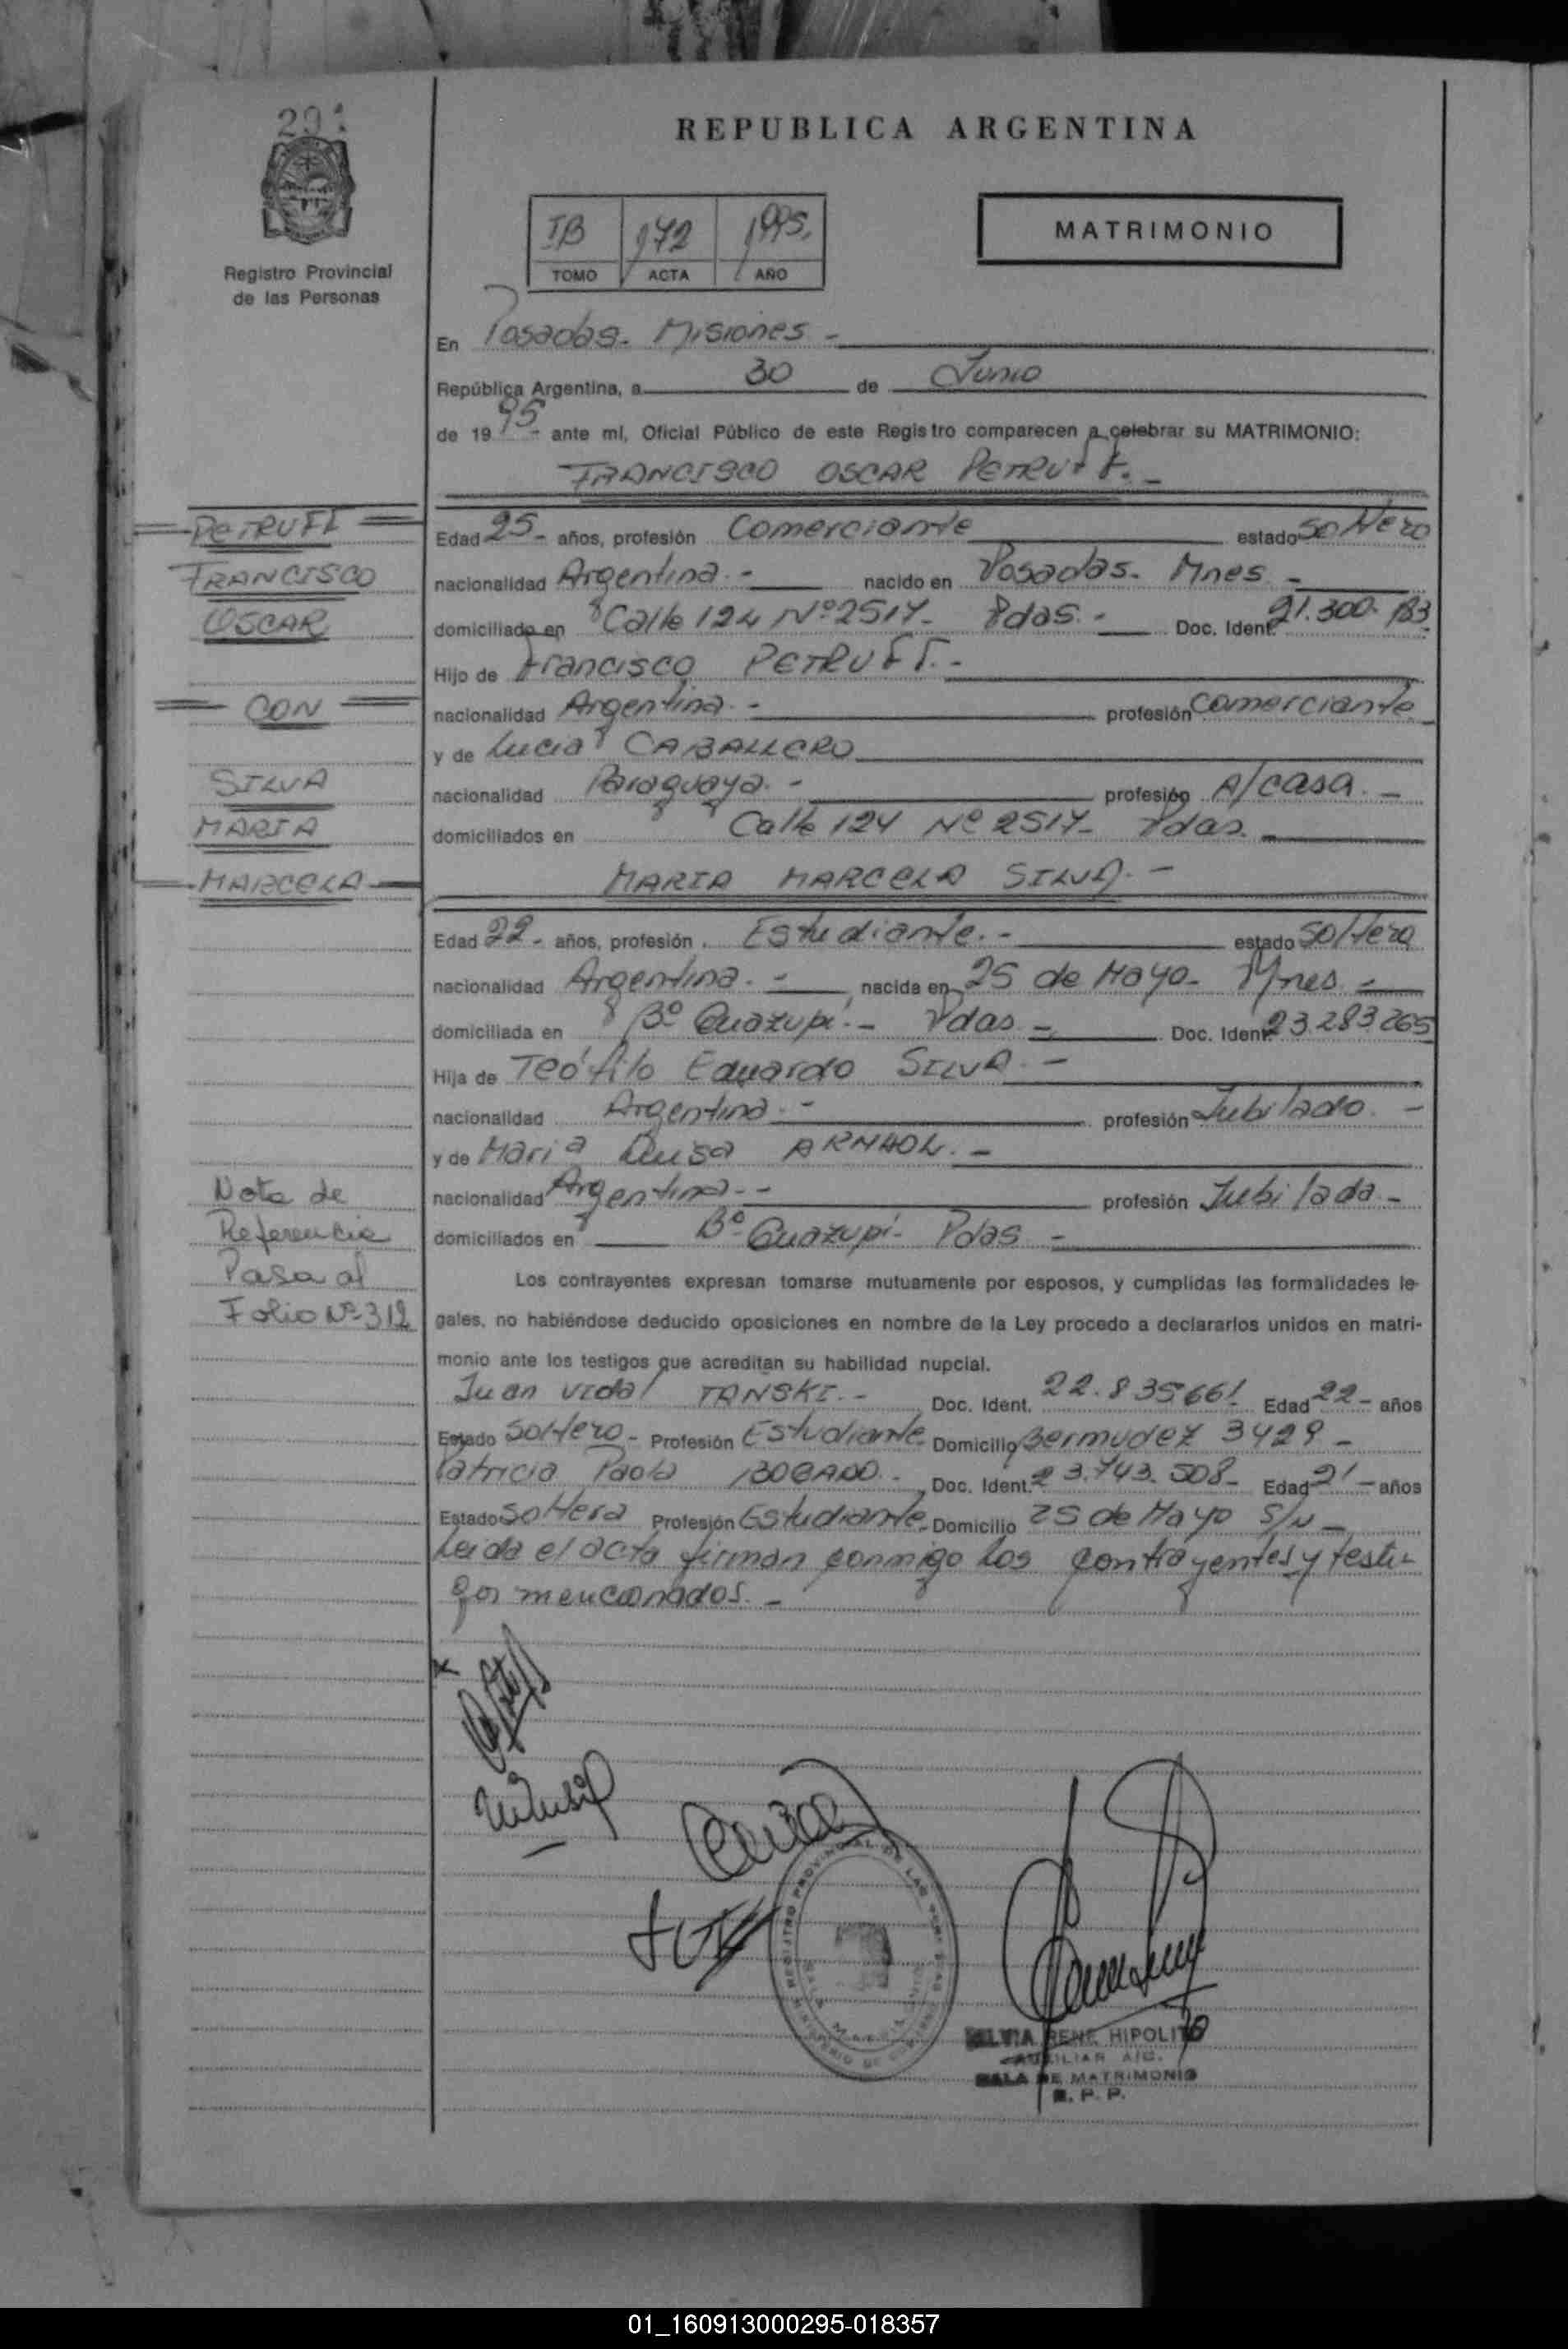 REPUBLICA ARGENTINA
Registro Provincial
de las Personas
MATRIMONIO
1995.
TOMO ACTA AÑO
En Posadas - Misiones -
República Argentina, a 30 de Junio
de 1995 - ante mí, Oficial Público de este Registro comparecen a celebrar su MATRIMONIO:
FRANCISCO OSCAR PETRUFF. -
PETRUFF
FRANCISCO
OSCAR
CON
SILVA
MARIA
MARCELA
Edad 25 - años, profesión Comerciante estado Soltero
nacionalidad Argentina. - nacido en Posadas - Mnes -
domiciliado en Calle 124 Nº 2517 - Pdas. - Doc. Ident. 21.300.
Hijo de Francisco PETRUFF. -
nacionalidad Argentina. - profesión Comerciante
y de Lucia CABALLERO
nacionalidad Paraguaya. - profesión A/casa. -
domiciliados en Calle 124 Nº 2517 - Pdas. -
MARIA MARCELA SILVA. -
Edad 22 - años, profesión Estudiante. - estado Soltera
nacionalidad Argentina. - nacida en 25 de Mayo - Mnes -
domiciliada en Bº Guazupi. - Pdas - Doc. Ident. 23.283.265
Hija de Teófilo Eduardo SILVA. -
nacionalidad Argentina. - profesión Jubilado. -
y de Maria Luisa -
nacionalidad Argentina. - profesión Jubilada -
domiciliados en Bº Guazupi - Pdas -
Nota de
Referencia
Pasa al
Folio Nº 312
Los contrayentes expresan tomarse mutuamente por esposos, y cumplidas las formalidades le-
gales, no habiéndose deducido oposiciones en nombre de la Ley procedo a declararlos unidos en matri-
monio ante los testigos que acreditan su habilidad nupcial.
Juan Vidal TANSKI. - Doc. Ident. 22.835661 Edad 22 - años
Estado Soltero - Profesión Estudiante - Domicilio Bermudez 3429 -
Patricia Paola BOGADO. - Doc. Ident. 23.743.508 - Edad 21 - años
Estado Soltera Profesión Estudiante - Domicilio 25 de Mayo S/N -
Leida el acta firman conmigo los contrayentes y testi-
gos mencionados. -
REGISTRO PROVINCIAL DE LAS PERSONAS
SILVIA RENE HIPOLITO
AUXILIAR A/C.
SALA DE MATRIMONIO
R. P. P.
01_160913000295-018357